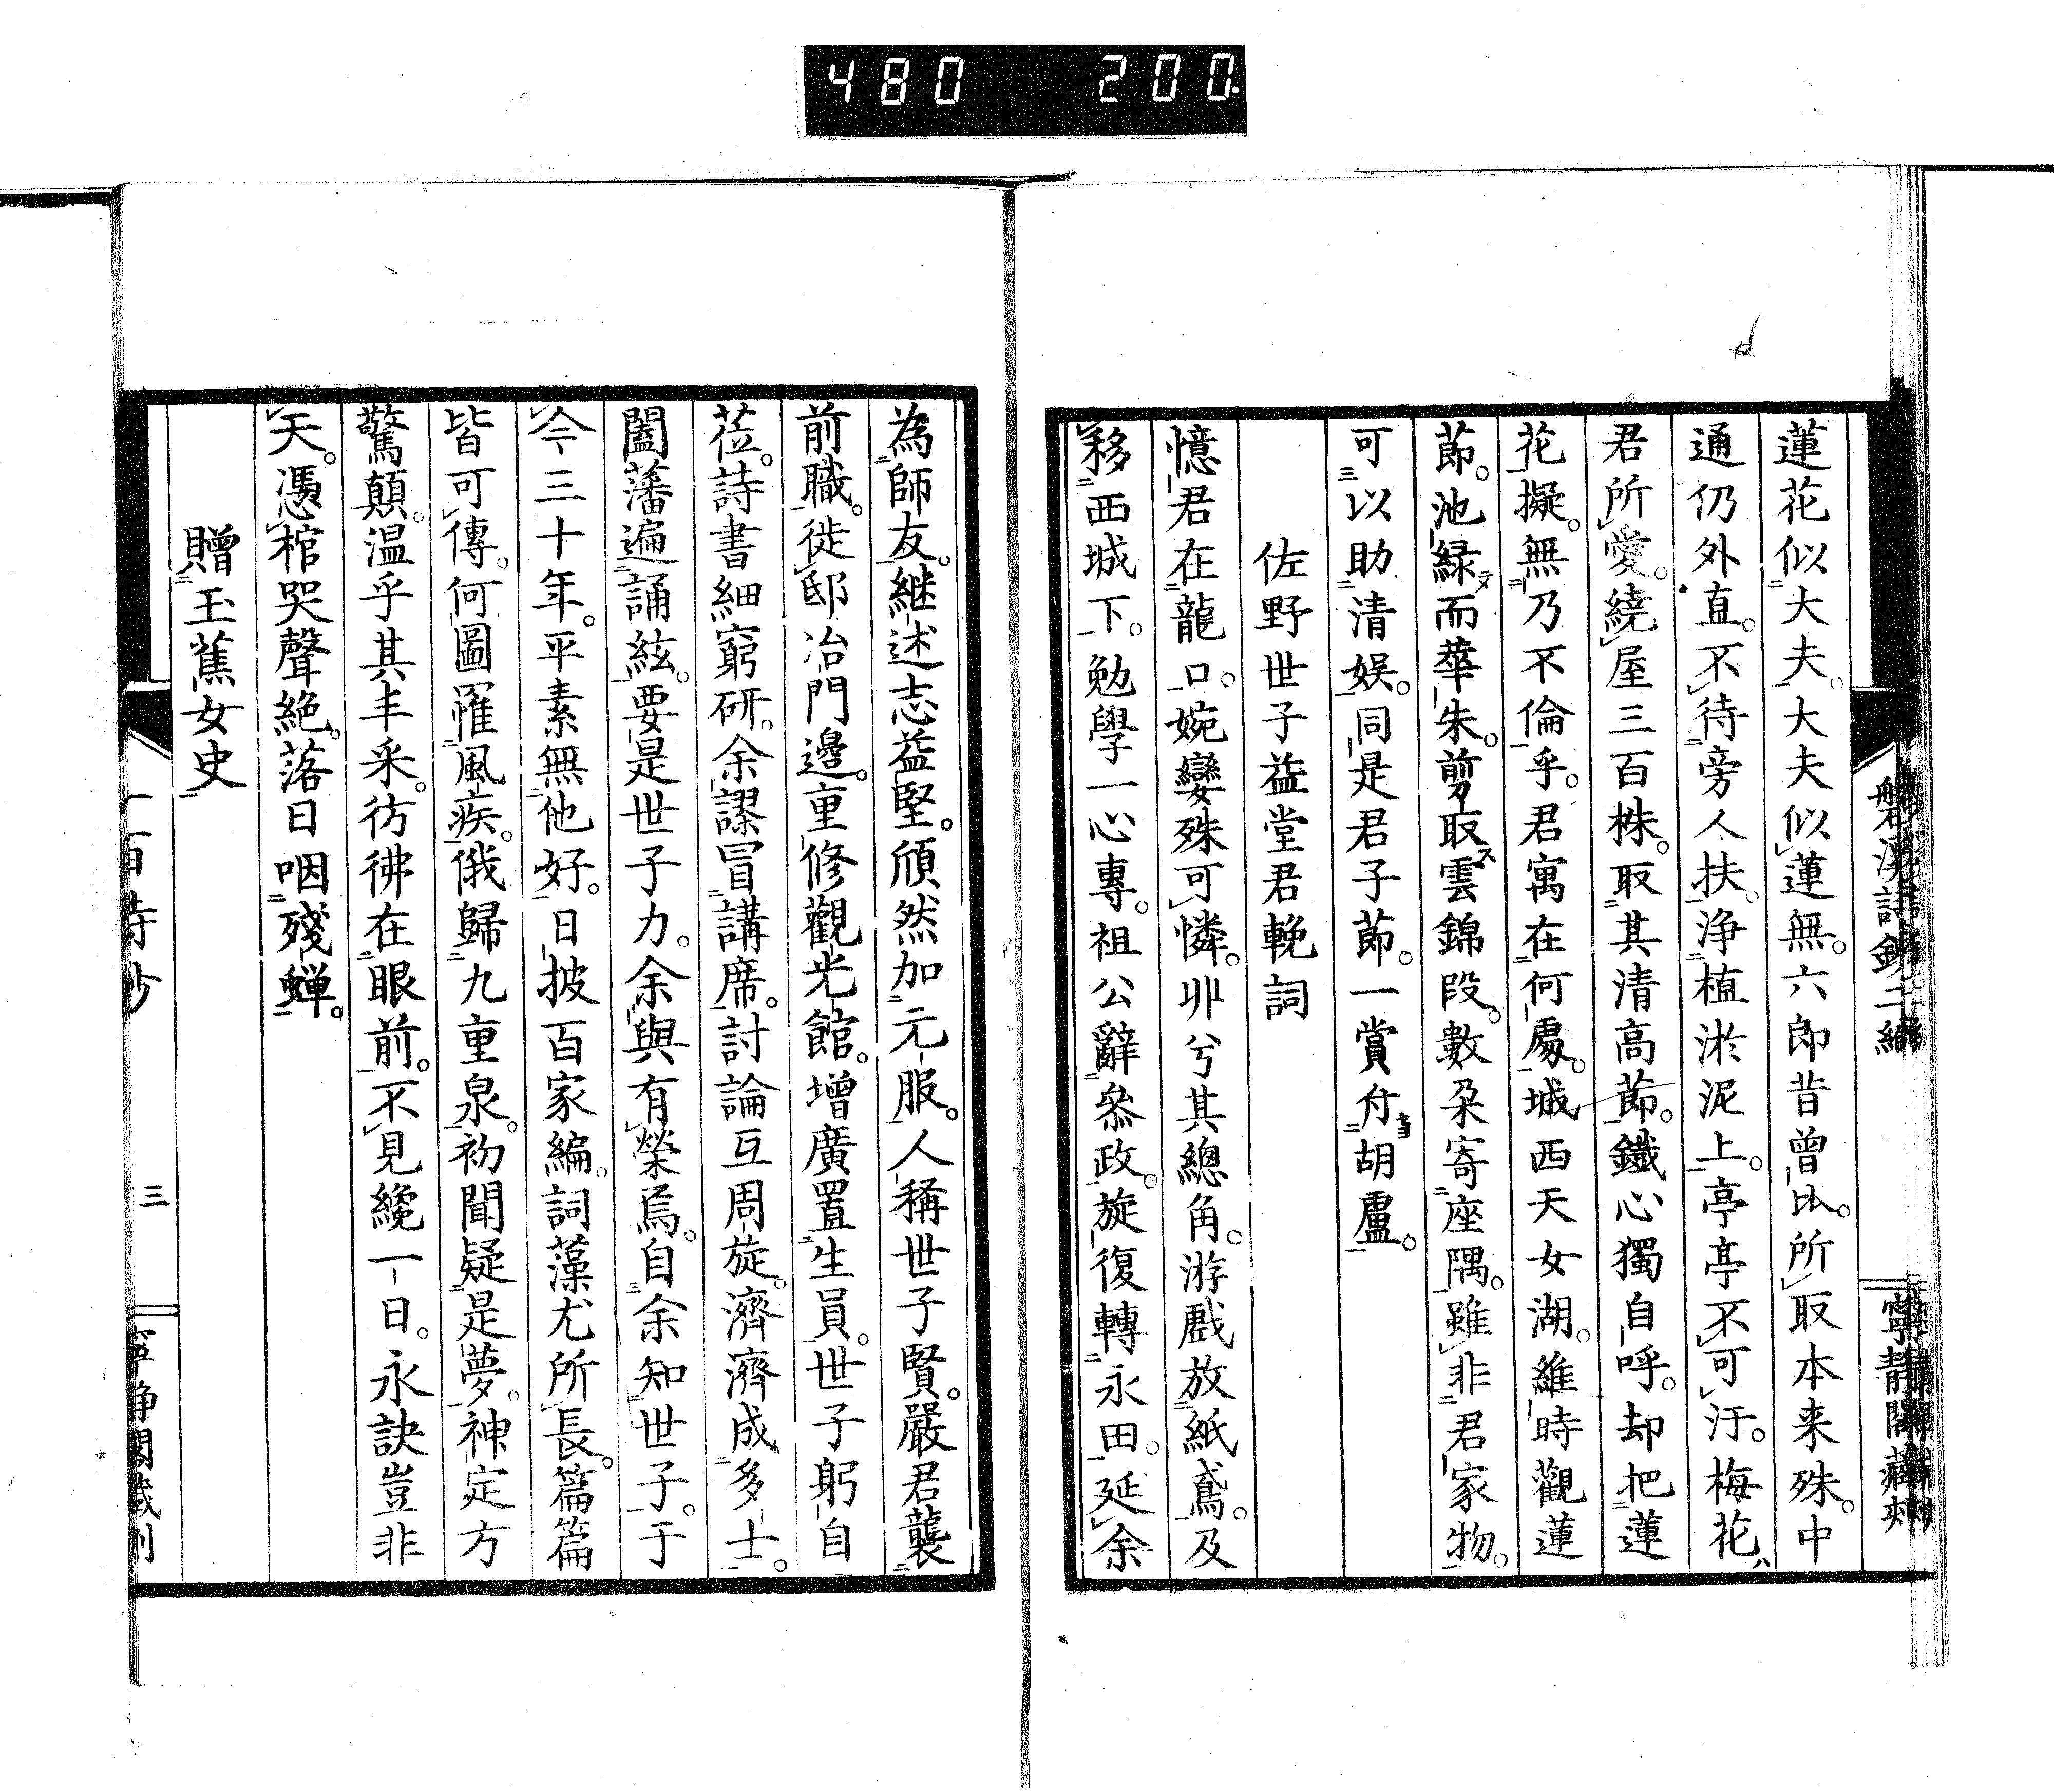 480 200
磐溪詩鈔二編
寧靜閣藏
蓮花似大夫。大夫似蓮無。六郎昔曾比。所取本来殊。中
通仍外直。不待旁人扶。浄植淤泥上。亭亭不可汙。梅花
君所愛。繞屋三百株。取其清高節。鐵心獨自呼。却把蓮
花擬。無乃不倫乎。君寓在何處。城西天女湖。維時觀蓮
節。池緑而華朱。剪取雲錦段。數朶寄座隅。雖非君家物。
可以助清娱。同是君子節。一賞付胡盧。
佐野世子益堂君輓詞
憶君在龍口。婉孌殊可憐。丱兮其總角。游戲放紙鳶。及
移西城下。勉學一心專。祖公辭叅政。旋復轉永田。延余
為師友。継述志益堅。頎然加元服。人稱世子賢。嚴君襲
前職。徙邸冶門邊。重修觀光館。增廣置生員。世子躬自
莅。詩書細窮研。余謬冒講席。討論互周旋。濟濟成多士。
闔藩遍誦絃。要是世子力。余與有榮焉。自余知世子。于
今三十年。平素無他好。日披百家編。詞藻尤所長。篇篇
皆可傳。何圖罹風疾。俄歸九重泉。初聞疑是夢。神定方
驚顛。温乎其丰采。彷彿在眼前。不見纔一日。永訣豈非
天。憑棺哭聲絶。落日咽殘蝉。
贈玉蕉女史
三